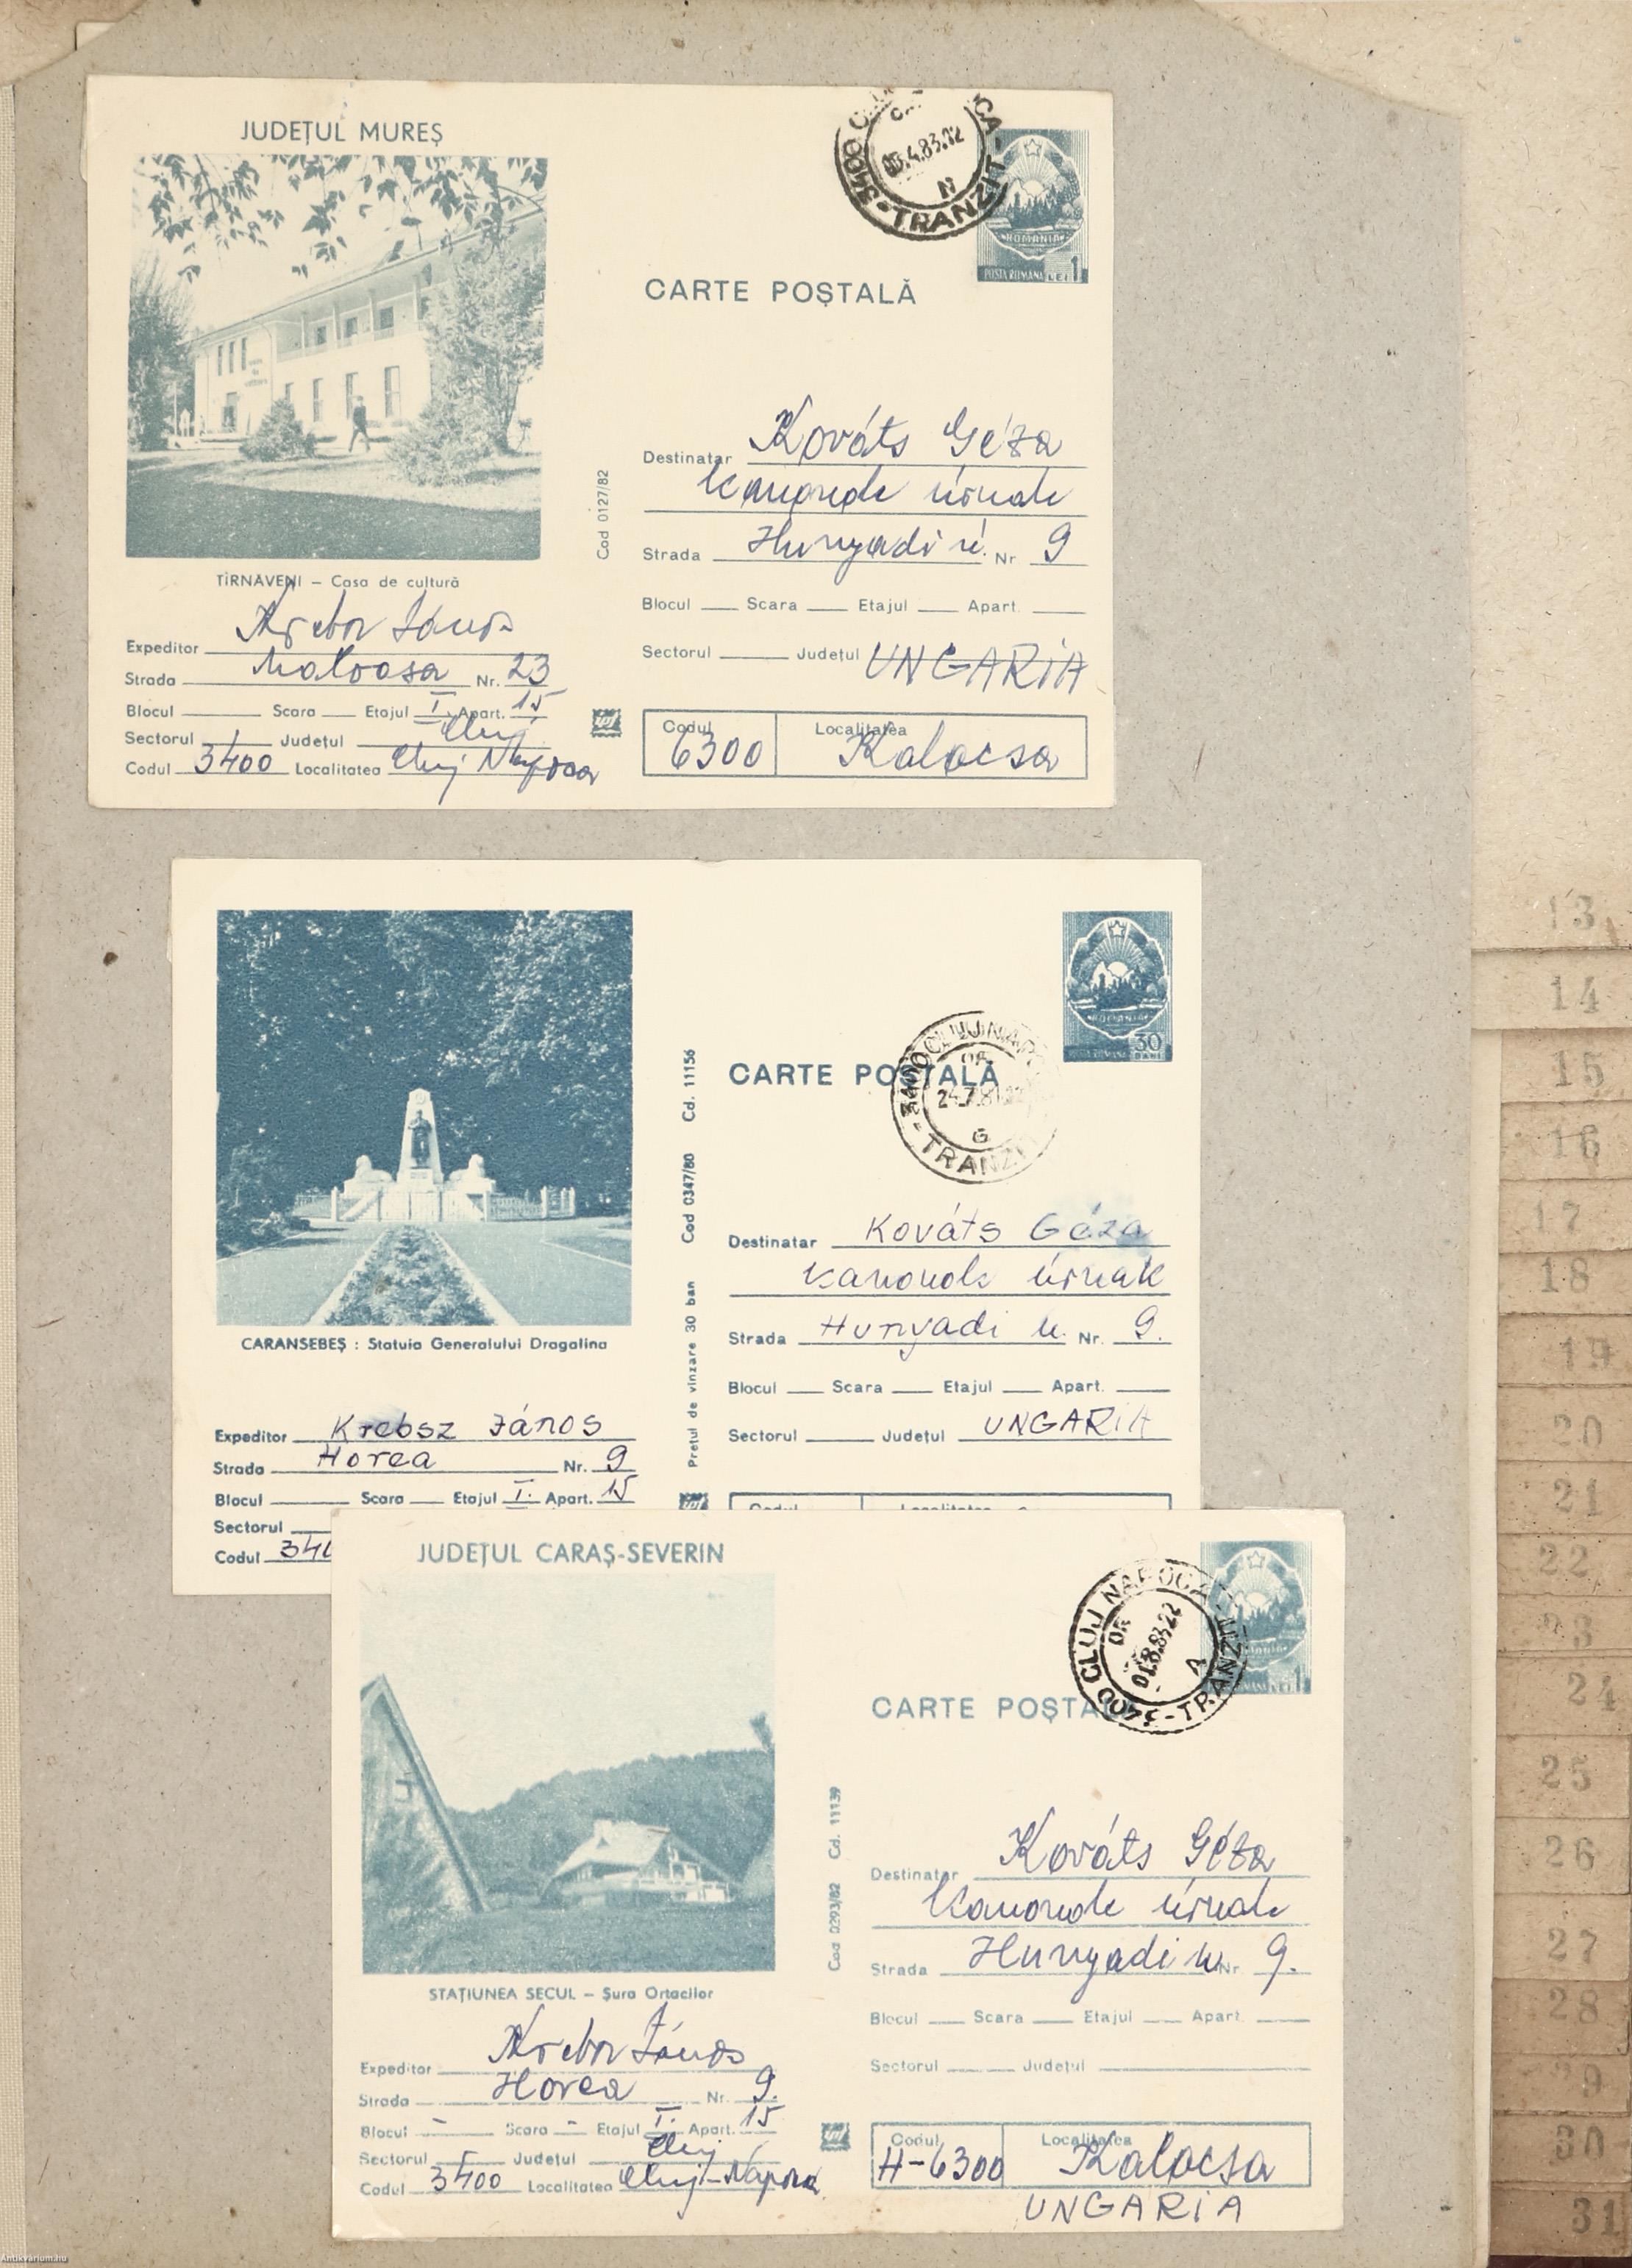 JUDEȚUL MUREȘ
TRANZIT
3400
.4.83.22
N
ROMANIA
POSTA ROMANA LEI 1
CARTE POȘTALĂ
Cod 0127/82
TÎRNAVENI – Casa de cultură
Destinatar Kováts Géza
kanonok úrnak
Strada Hunyadi u. Nr 9
Blocul Scara Etajul Apart.
Sectorul Județul UNGARIA
Codul 6300 Localitatea Kalocsa
Expeditor János
Strada Nr. 23
Blocul Scara Etajul I Apart. 15
Sectorul Județul Cluj
Codul 3400 Localitatea Cluj Napoca
30
CARTE POȘTALĂ
3400 CLUJ NAP
24.7.81.22
G
TRANZIT
Pretul de vînzare 30 ban Cod 0347/80 Cd. 11156
CARANSEBEȘ : Statuia Generalului Dragalina
Destinatar Kováts Géza
kanonok úrnak
Strada Hunyadi u. Nr. 9.
Blocul Scara Etajul Apart.
Sectorul Județul UNGARIA
Codul Localitatea
Expeditor Krebsz János
Strada Horea Nr. 9
Blocul Scara Etajul I. Apart. 15
Sectorul
Codul 340
JUDEȚUL CARAȘ-SEVERIN
3400 CLUJ NAPOCA
01.8.83.22
A
TRANZIT
CARTE POȘTA
Cod 0293/82 Cd. 11139
STAȚIUNEA SECUL – Șura Ortacilor
Destinatar Kováts Géza
kanonok úrnak
Strada Hunyadi u. Nr. 9.
Blocul Scara Etajul Apart.
Sectorul Județul
Codul H-6300 Localitatea Kalocsa
UNGARIA
Expeditor János
Strada Horea Nr. 9.
Blocul - Scara - Etajul I. Apart. 15
Sectorul Județul Cluj
Codul 3400 Localitatea Cluj-Napoca
13
14
15
16
17
18
19
20
21
22
23
24
25
26
27
28
29
30
31
Antikvárium.hu